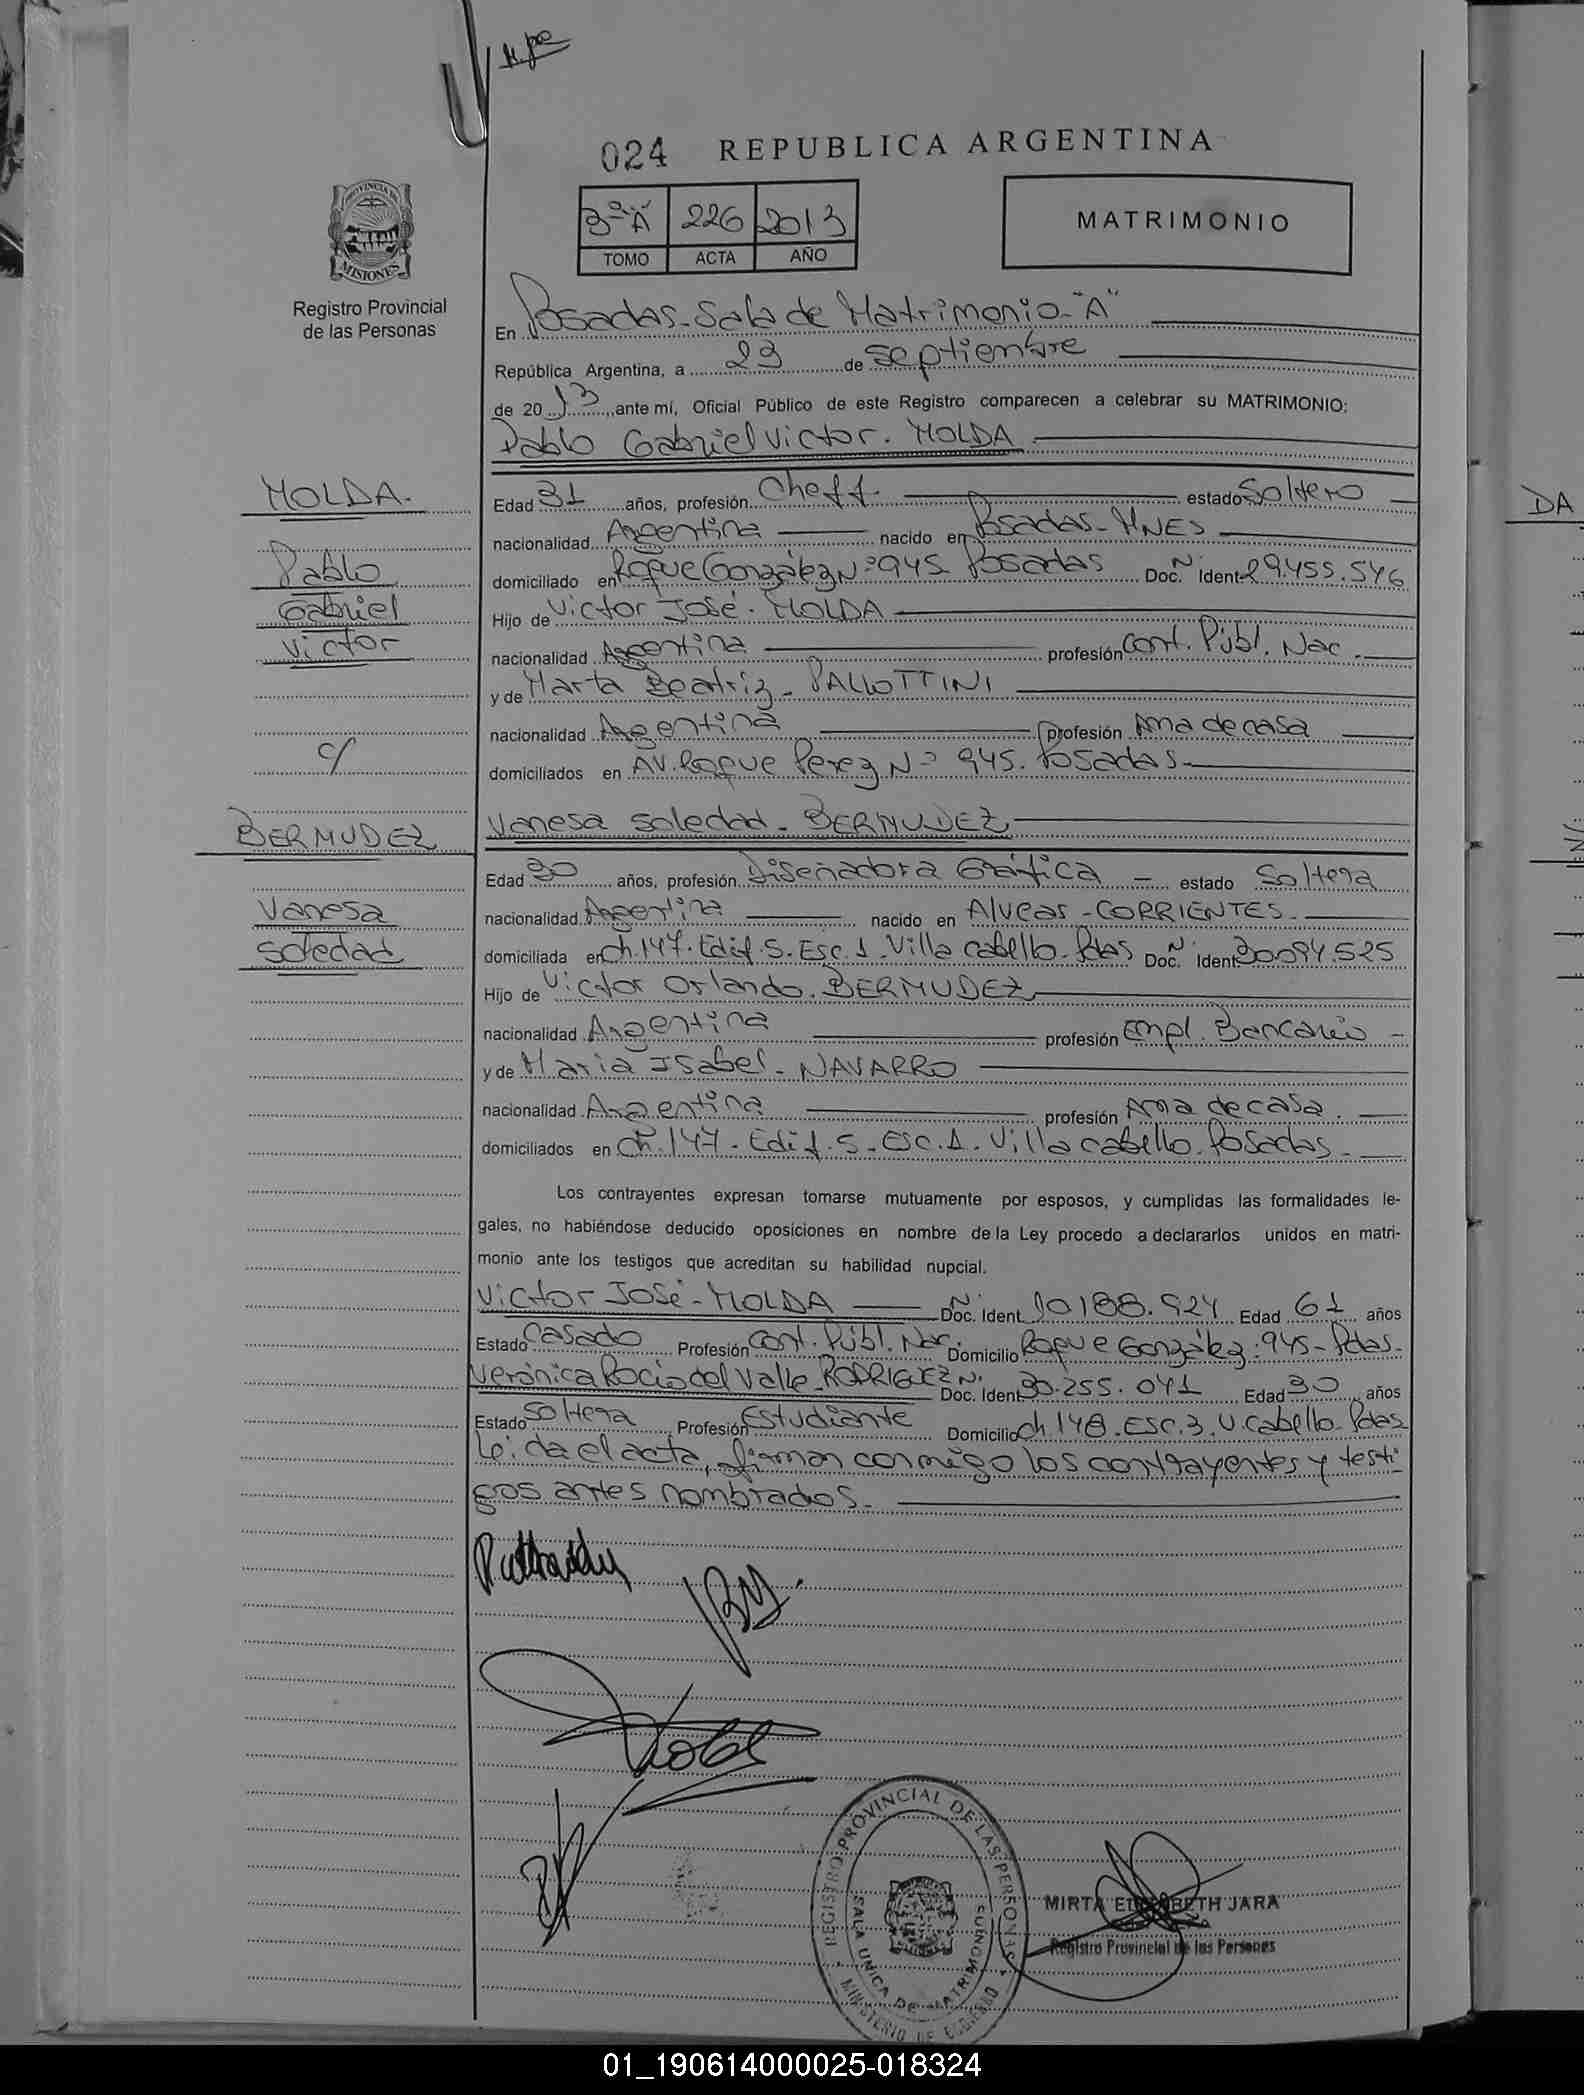 024 REPUBLICA ARGENTINA
PROVINCIA DE
MISIONES
Registro Provincial
de las Personas
3º "A" 226 2013
TOMO ACTA AÑO
MATRIMONIO
En Posadas-Sala de Matrimonio-"A"
República Argentina, a 23 de septiembre
de 2013, ante mí, Oficial Público de este Registro comparecen a celebrar su MATRIMONIO:
Pablo Gabriel Victor. MOLDA
MOLDA.
Pablo
Gabriel
Victor
c/
BERMUDEZ
Vanesa
Soledad
Edad 31 años, profesión Cheff. estado Soltero
nacionalidad Argentina nacido en Posadas-MNES
domiciliado en Roque González Nº 945 Posadas Doc. Nº Ident 29.455.546
Hijo de Victor José. MOLDA
nacionalidad Argentina profesión Cont. Públ. Nac.
y de Marta Beatriz- PALLOTTINI
nacionalidad Argentina profesión Ama de casa
domiciliados en AV. Roque Perez Nº 945. Posadas-
Vanesa Soledad- BERMUDEZ
Edad 30 años, profesión Diseñadora Gráfica - estado Soltera
nacionalidad Argentina nacido en Alvear-CORRIENTES-
domiciliada en Ch.147. Edif. S. Esc. 1. Villa Cabello. Pdas Doc. Nº Ident 30.094.525
Hijo de Victor Orlando. BERMUDEZ
nacionalidad Argentina profesión Empl. Bancario -
y de Maria Isabel- NAVARRO
nacionalidad Argentina profesión Ama de casa.
domiciliados en Ch.147-Edif. S. Esc. 1. Villa Cabello. Posadas-
Los contrayentes expresan tomarse mutuamente por esposos, y cumplidas las formalidades le-
gales, no habiéndose deducido oposiciones en nombre de la Ley procedo a declararlos unidos en matri-
monio ante los testigos que acreditan su habilidad nupcial.
Victor José-MOLDA Doc. Nº Ident 10188.924 Edad 61 años
Estado Casado Profesión Cont. Públ. Nac. Domicilio Roque González. 945-Pdas-
Verónica Rocio del Valle-RODRIGUEZ Doc. Nº Ident 30.255.041 Edad 30 años
Estado Soltera Profesión Estudiante Domicilio Ch.148. Esc.3. V. Cabello. Pdas
Leida el acta, firman conmigo los contrayentes y testi
gos antes nombrados-
REGISTRO PROVINCIAL DE LAS PERSONAS
SALA UNICA DE MATRIMONIOS
MINISTERIO DE GOBIERNO
MIRTA ELIZABETH JARA
Registro Provincial de las Personas
DA
01_190614000025-018324